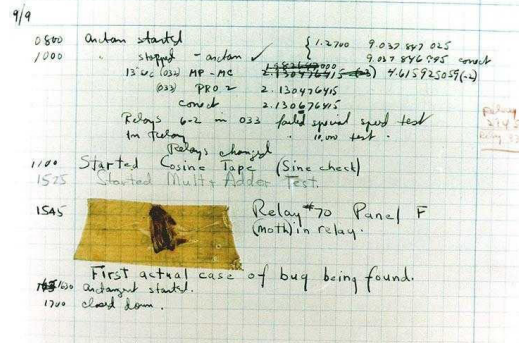 9/9
0800 antan started
1000 " stopped - antan ✓ { 1.2700 9.037 847 025
9.037 846 995 correct
13" uc (032) MP - MC 2.130476415 (-3) 4.615925059(-2)
(033) PRO 2 2.130476415
correct 2.130676415
Relays 6-2 in 033 failed special speed test
In relay " 10,000 test.
Relays changed
1100 Started Cosine Tape (Sine check)
1525 Started Mult + Adder Test.
1545 Relay #70 Panel F
(moth) in relay.
First actual case of bug being found.
1630 antangent started.
1700 closed down.